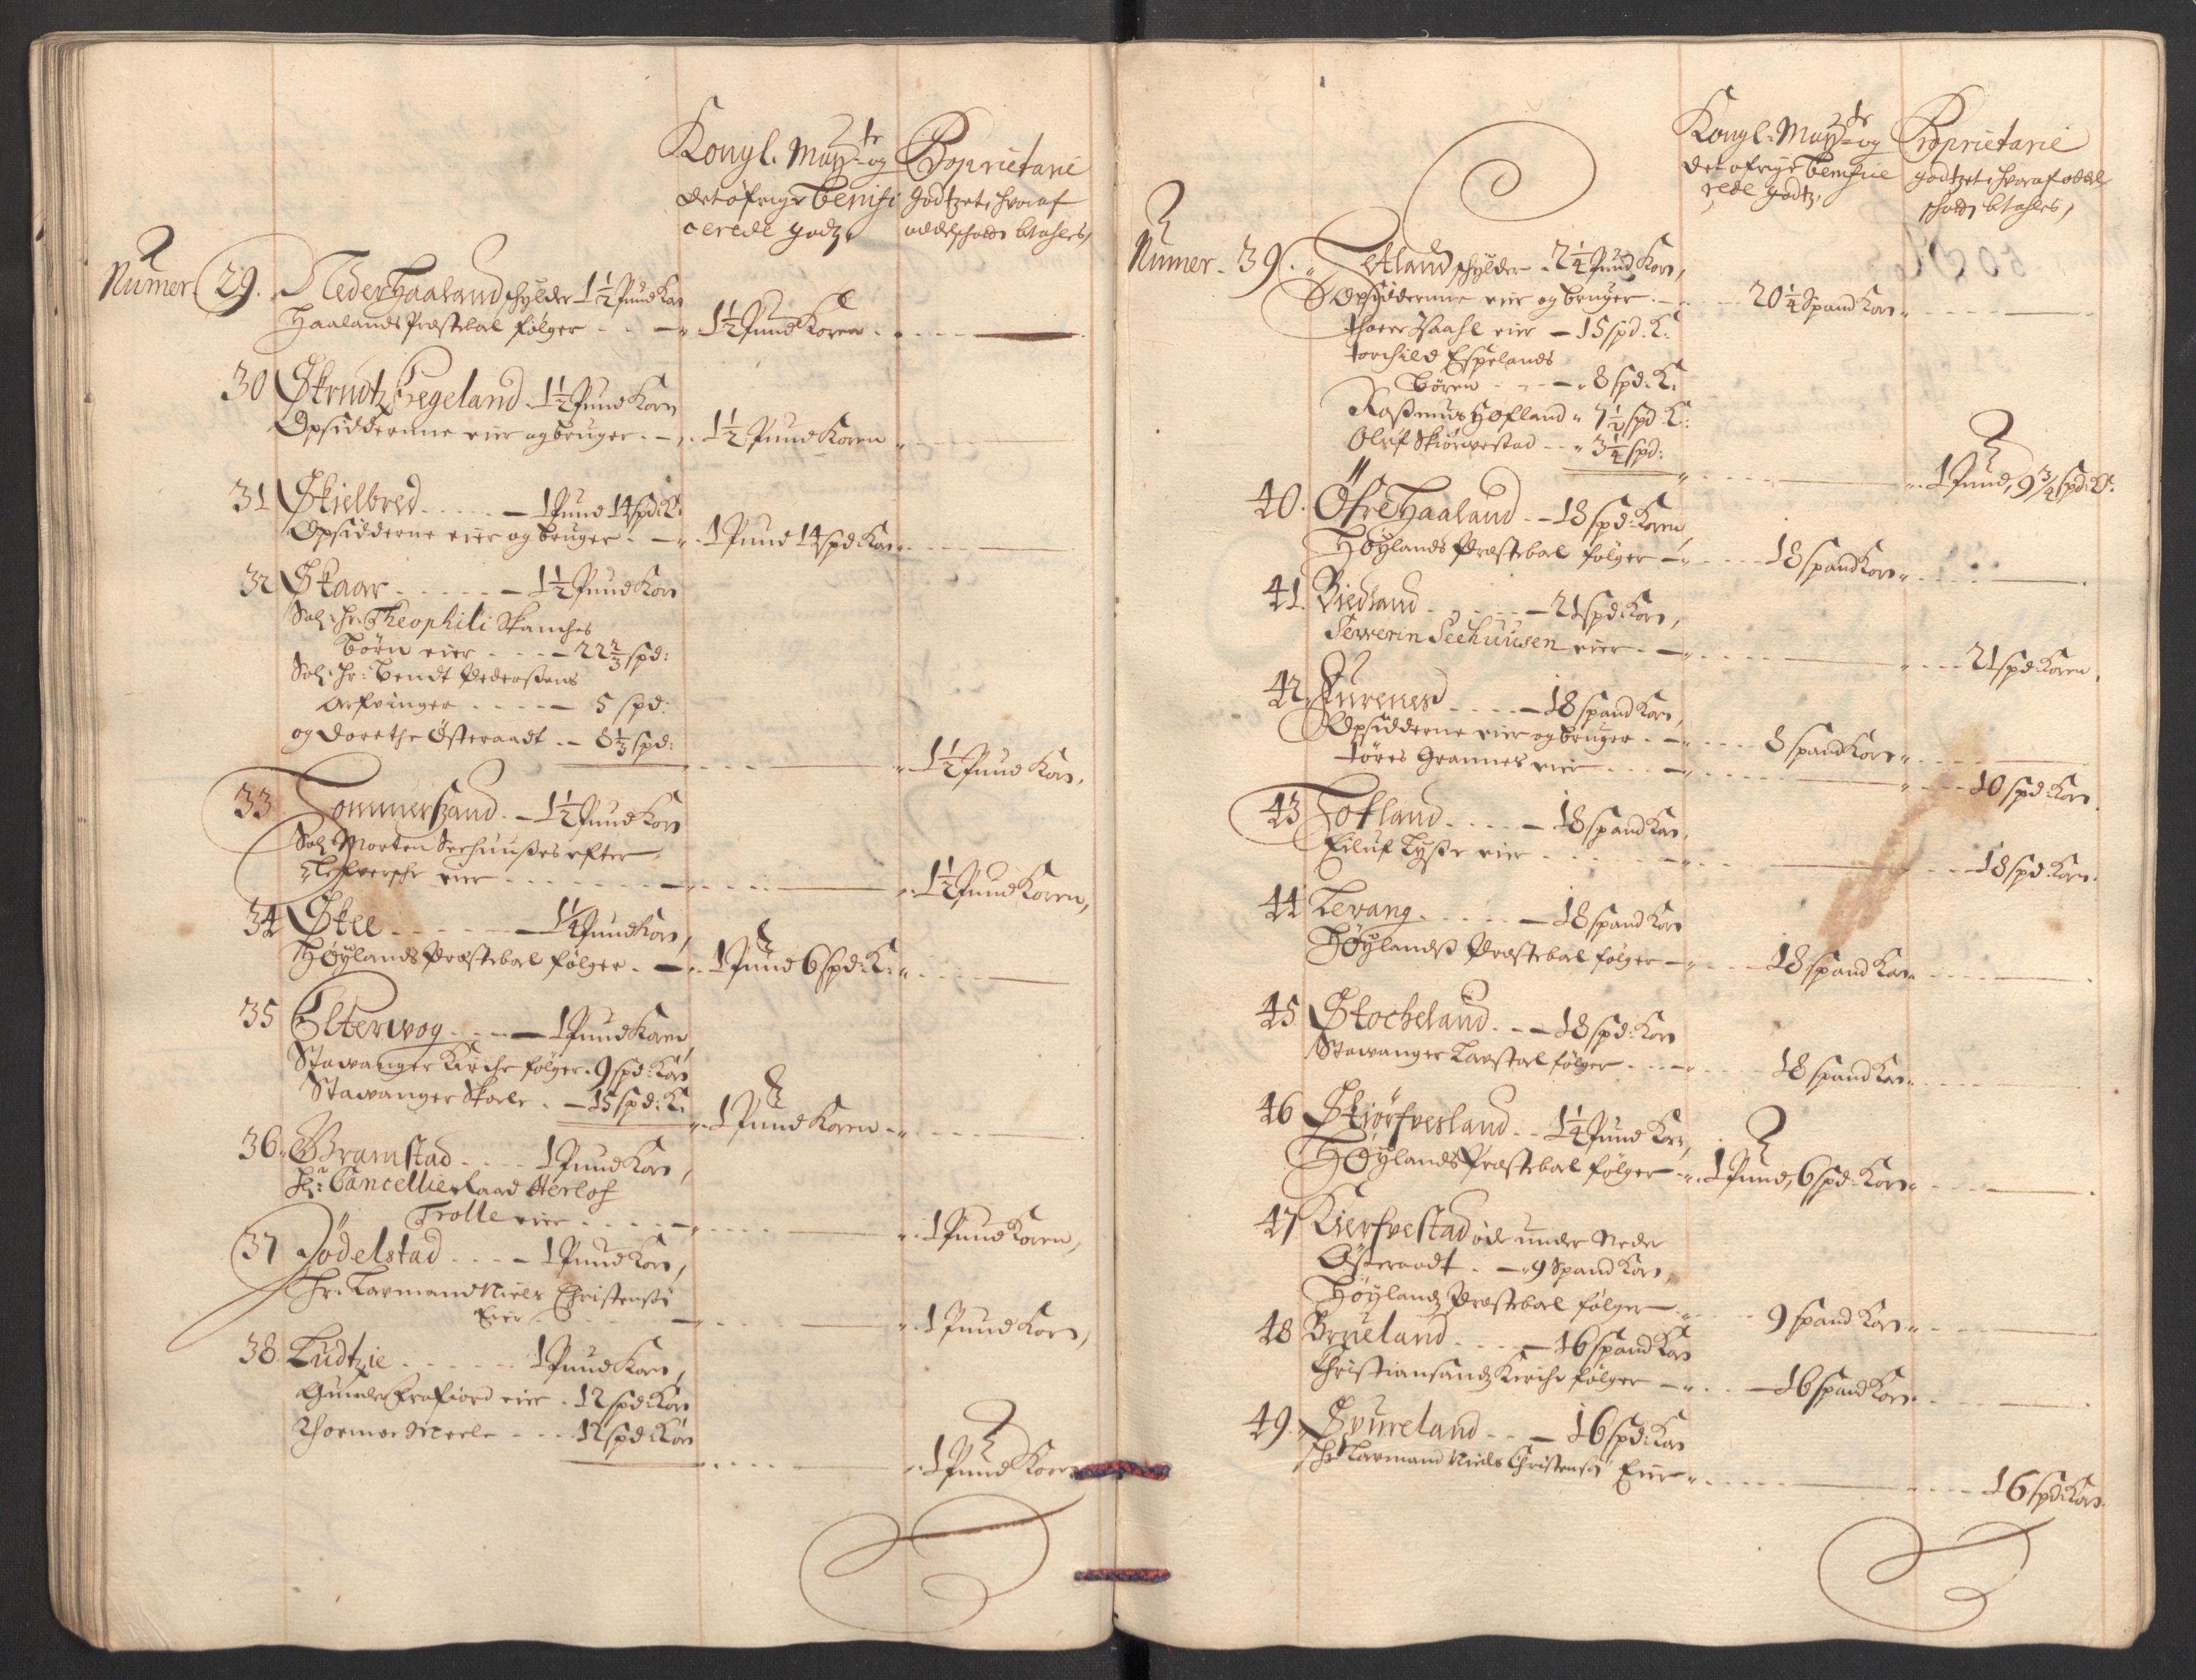 Kongl: May:te og
det øfrige benifi
cerede godtz,
Proprietarie
godtzet, hvoraf
oddelschatt btahles,
Numer. 29. Neder Haaland schylder 1½ Pund Korn
Haalands Præstebol følger - - 1½ Pund Koren
30 Skrudtz Hegeland - 1½ Pund Korn
Opsidderne eier og bruger - 1½ Pund Koren
31 Skielbred - 1 Pund 14 spd: K:
Opsidderne eier og bruger - 1 Pund 14 spd: Korn
32 Skaar - 1½ Pund Korn
Sal: Hr: Theophili Skanches
börn eier - 22⅔ spd:
Sal: Hr: Bendt Pederssens
Arfvinger - 5 spd:
og Dorethe Østeraadt - 8⅓ spd:
1½ Pund Korn,
33 Sommersand - 1½ Pund Korn
Sal: Morten Seehuusses efter
Lefversche eier - 1½ Pund Koren,
34 Skee - 1¼ Pund Korn,
Høylands Præstebol følger - 1 Pund 6 spd: K:
35 Elterwog - 1 Pund Koren,
Stawanger Kirche følger - 9 spd: Korn
Stawanger Skoele - 15 spd: K:
1 Pund Koren
36. Bramstad - 1 Pund Korn,
Hr: Cancellie Raad Herlof
Trolle eier - 1 Pund Koren,
37 Jödelstad - 1 Pund Korn,
Hr: Lavmand Niels Christenssön
Eier - 1 Pund Korn,
38. Ludtzie - 1 Pund Korn,
Gunder Frafiord eier - 12 spd: Korn
Thormoe Meele - 12 spd: Korn
1 Pund Koren
Kongl: May:te og
det øfrige benifice
rede godtz,
Proprietarie
godtzet, hvoraf oddel
schatt btahles,
Numer - 39. Setland schylder - 2¼ Pund Korn,
Opsidderne eier og bruger - 20¼ Spand Korn
Thoer Vaahl eier - 15 spd: K:
Torchild Espelands
Børen - 8 spd: K:
Rassmus Høfland - 7½ spd: K:
Oluf Skiørvestad - 3¼ spd:
1 Pund, 9¾ spd: K:
40. Öfre Haaland - 18 spd: Koren,
Høylands Præstebol følger - 18 spand Korn
41. Biedland - 21 spd: Korn,
Severin Seehuusen eier - 21 spd: Koren,
42. Kurenes - 18 spand Korn,
Opsidderne eier og bruger - 8 spand Korn
Töres Grannes eier - 10 spd: Korn
43 Sotland - 18 spand Korn
Eiluf Tysse eier - 18 spd: Korn
44 Levang - 18 spand Korn
Høylands Præstebol følger - 18 spand Korn
45 Stocheland - 18 spd: Korn
Stawanger Lavstol følger - 18 spand Korn
46 Skiörfvesland - 1¼ Pund Korn,
Høylands Præstebol følger - 1 Pund, 6 spd: Korn
47 Kierfvestad øde under Neder
Østeraadt - 9 Spand Korn,
Høylandz Præstebol følger - 9 spand Korn
48 Brueland - 16 spand Korn
Christiansandz Kirche følger - 16 spand Korn
49. Svureland - 16 spd: Korn
Hr: Lavmand Niels Christenssön Eier - 16 spd: Korn